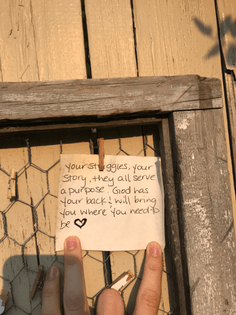 your struggles, your
story, they all serve
a purpose. God has
your back & will bring
you where you need to
be ♡